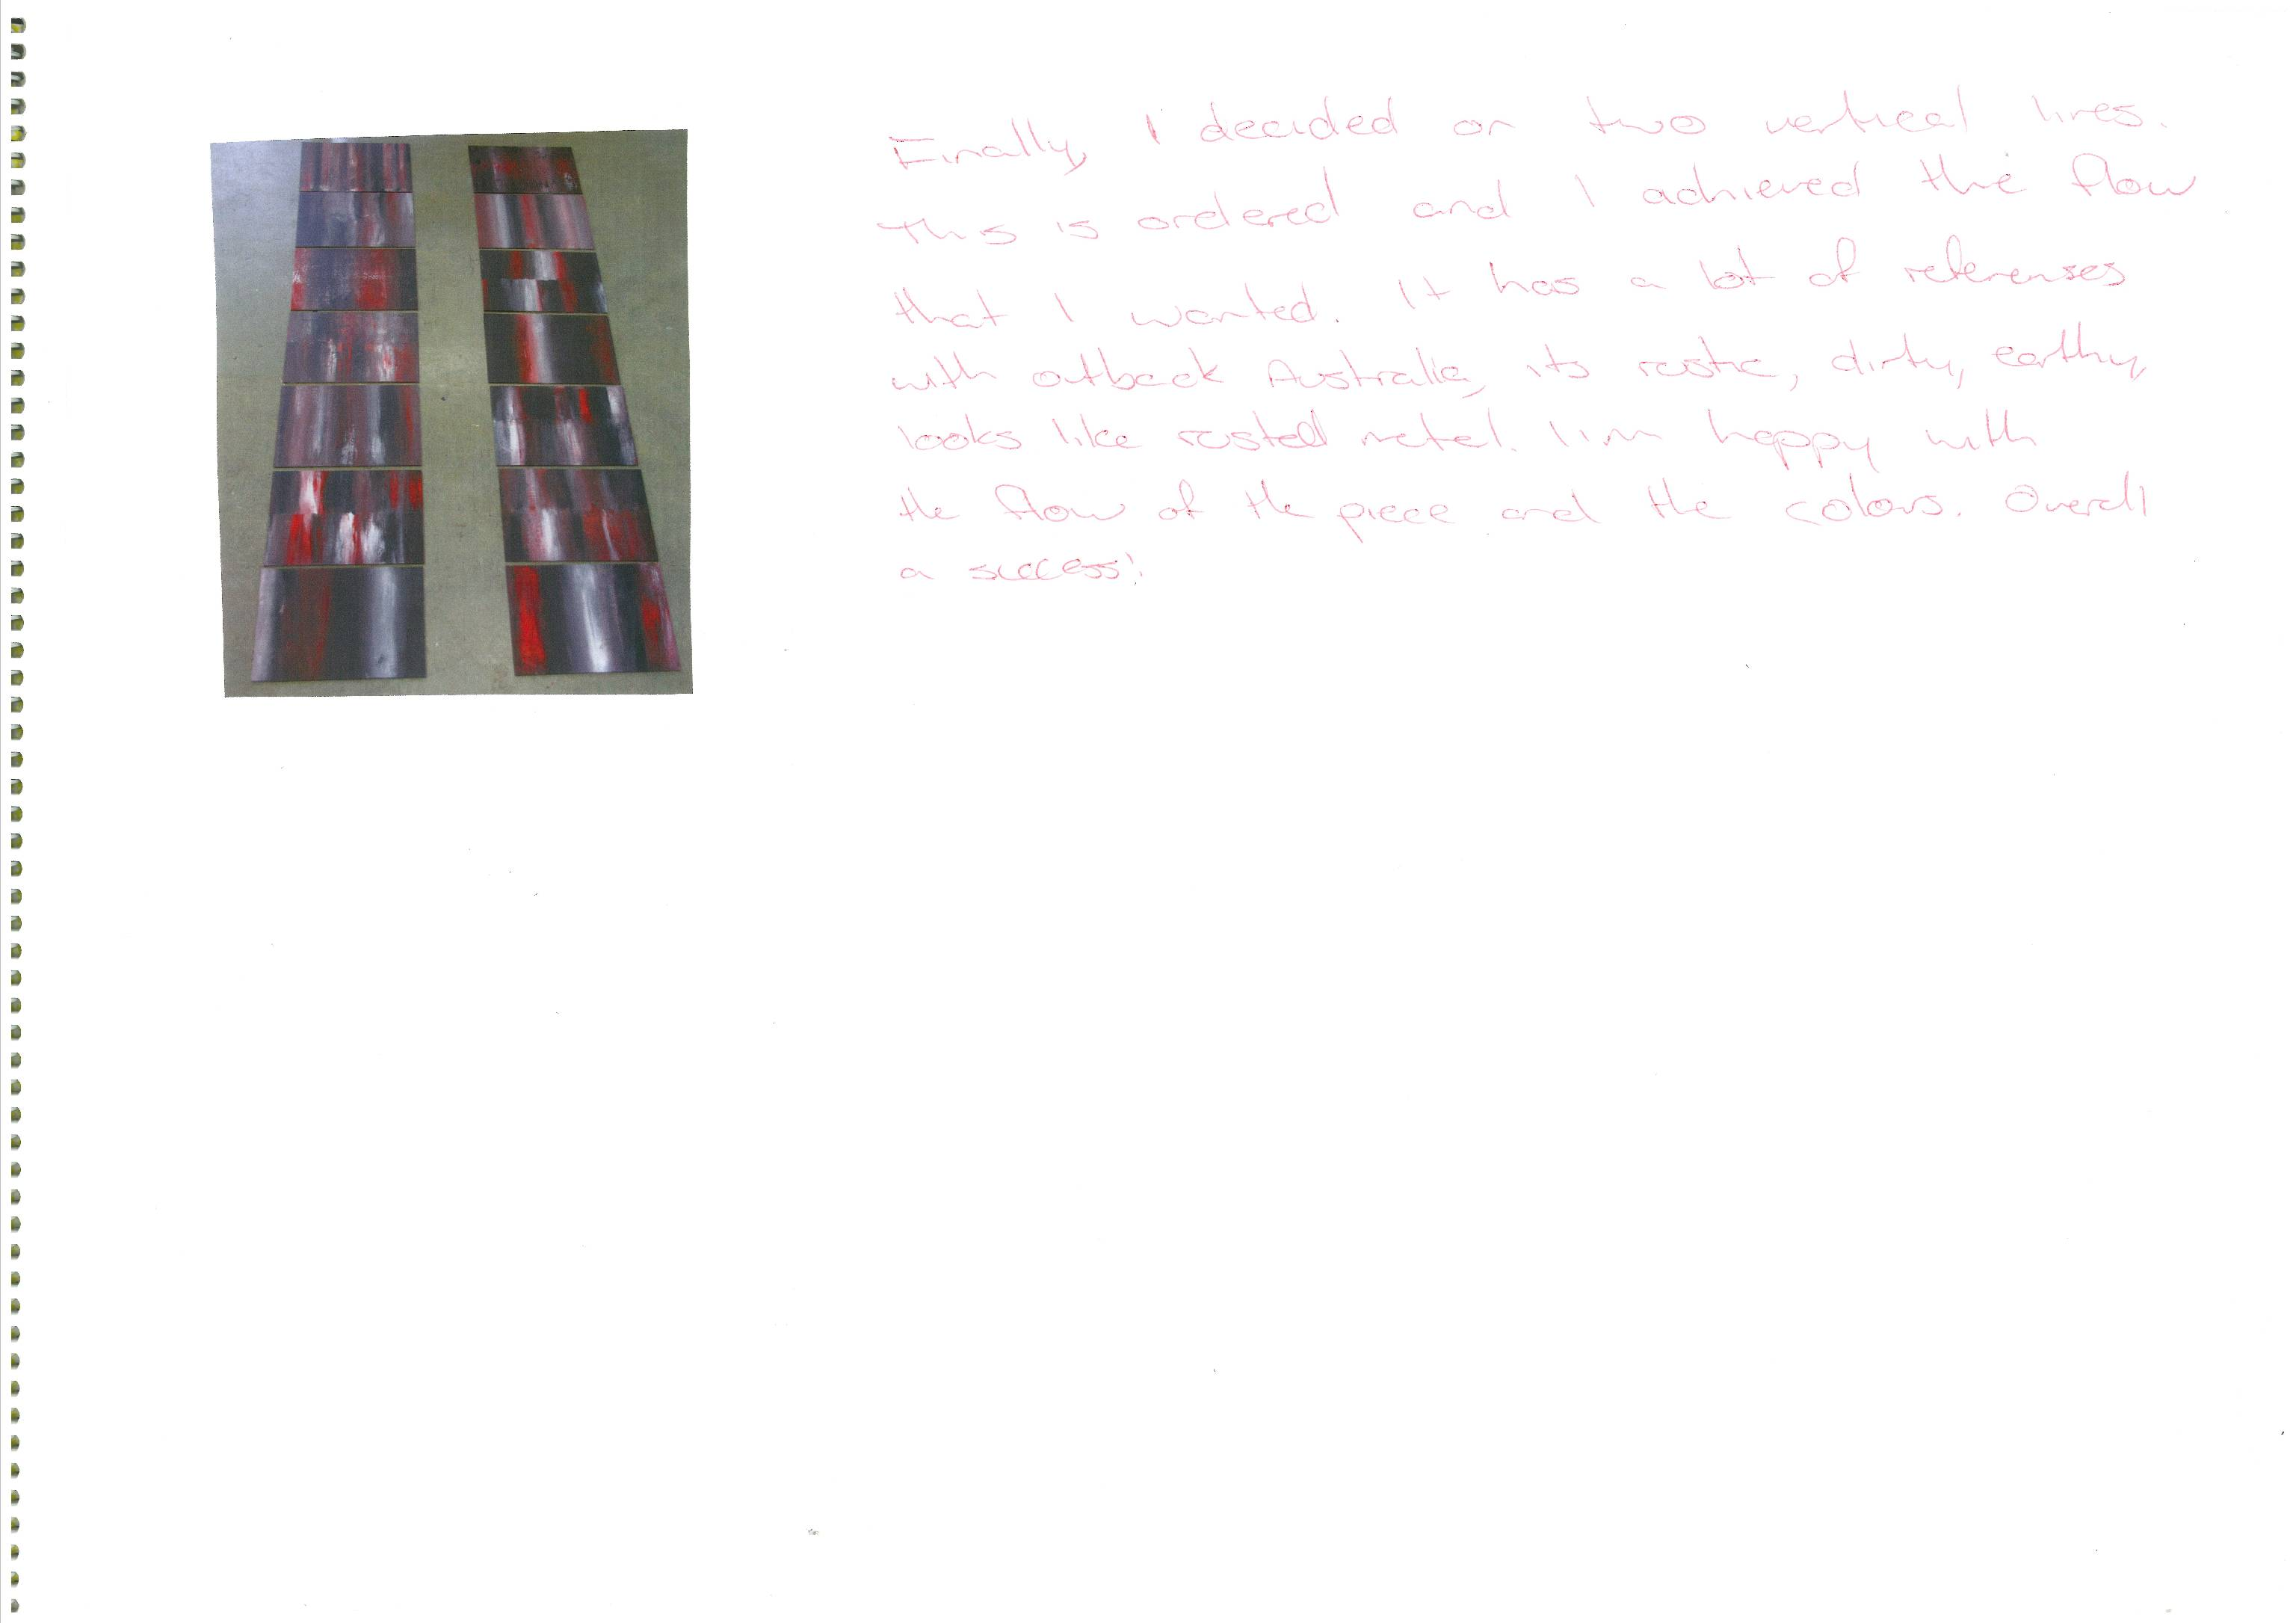 Finally, I decided on two vertical lines.
This is ordered and I achieved the flow
that I wanted. It has a lot of referenses
with outback Australia, its rustic, dirty, earthy,
looks like rusted metal. I'm happy with
the flow of the piece and the colors. Overall
a success!